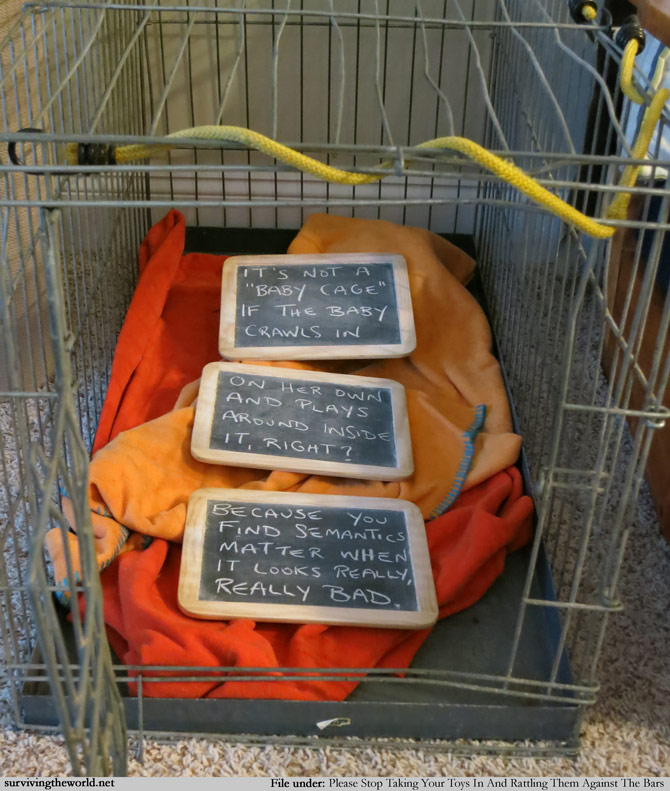 IT'S NOT A
"BABY CAGE"
IF THE BABY
CRAWLS IN
ON HER OWN
AND PLAYS
AROUND INSIDE
IT, RIGHT?
BECAUSE YOU
FIND SEMANTICS
MATTER WHEN
IT LOOKS REALLY,
REALLY BAD.
survivingtheworld.net File under: Please Stop Taking Your Toys In And Rattling Them Against The Bars